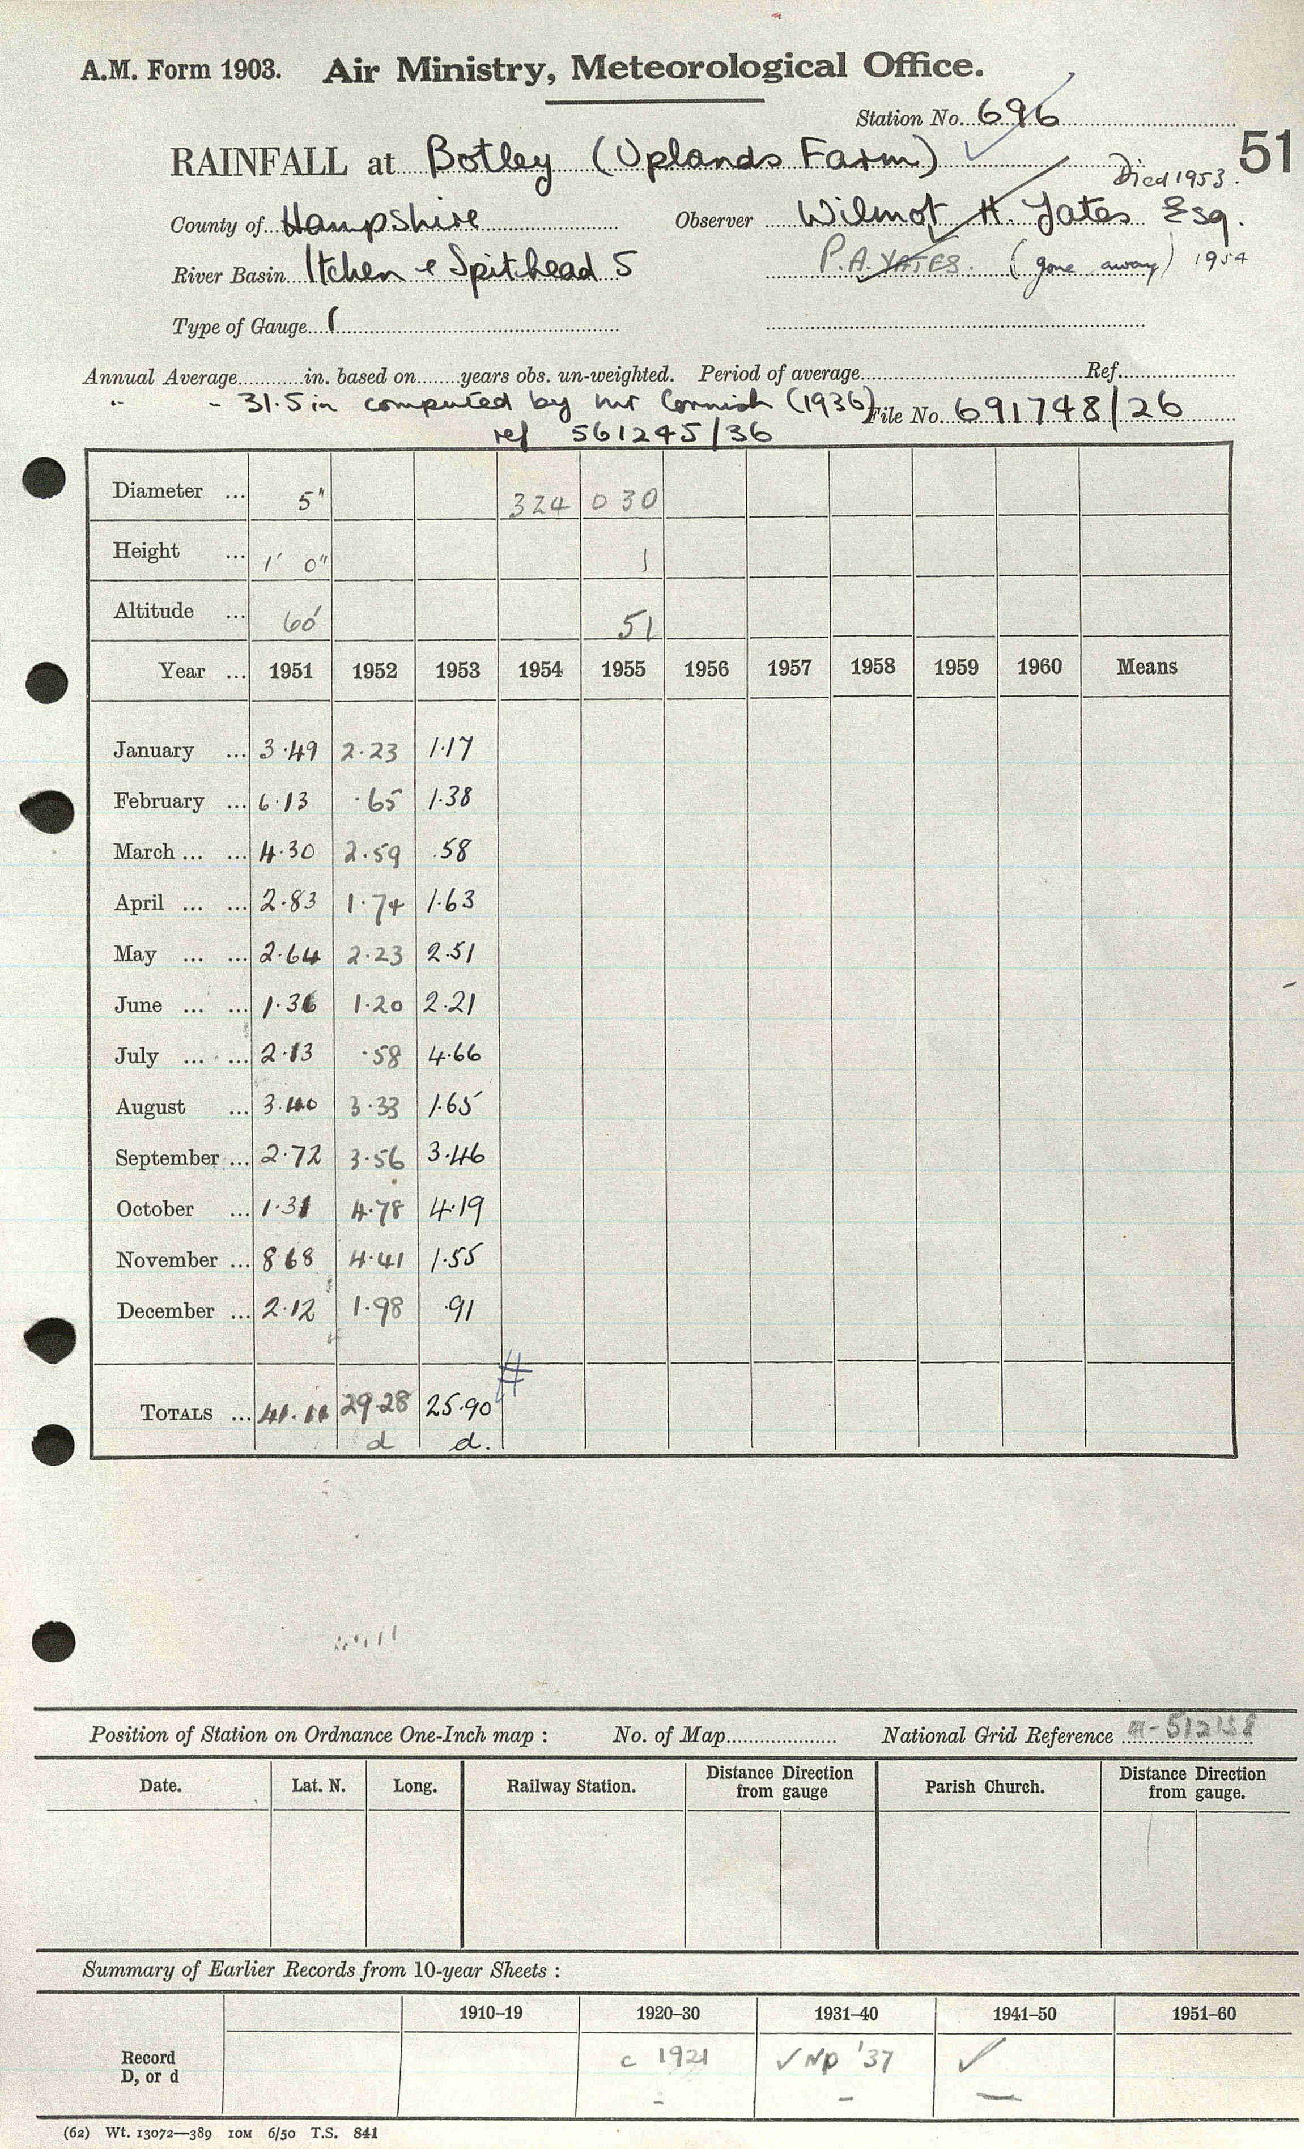 A.M. Form 1903. Air Ministry, Meteorological Office.
Station No. 696
51
RAINFALL at Botley (Uplands Farm)
Died 1953.
County of Hampshire Observer Wilmot H. Yates Esq.
River Basin Itchen & Spithead 5 P.A. YATES. (gone away) 1954
Type of Gauge (
Annual Average in. based on years obs. un-weighted. Period of average Ref.
" - 31.5 in computed by Mr Cornish (1936) File No. 691748/26
ref 561245/36
Diameter ... 5" 324 030
Height ... 1' 0" 1
Altitude ... 60' 51
Year ... 1951 1952 1953 1954 1955 1956 1957 1958 1959 1960 Means
January ... 3.49 2.23 1.17
February ... 6.13 .65 1.38
March ... ... 4.30 2.59 .58
April ... ... 2.83 1.74 1.63
May ... ... 2.64 2.23 2.51
June ... ... 1.36 1.20 2.21
July ... ... 2.13 .58 4.66
August ... 3.40 3.33 1.65
September ... 2.72 3.56 3.46
October ... 1.31 4.78 4.19
November ... 8.68 4.41 1.55
December ... 2.12 1.98 .91
#
TOTALS ... 41.11 29.28 25.90
d d.
Position of Station on Ordnance One-Inch map : No. of Map National Grid Reference
Date. Lat. N. Long. Railway Station. Distance Direction from gauge Parish Church. Distance Direction from gauge.
Summary of Earlier Records from 10-year Sheets :
1910–19 1920–30 1931–40 1941–50 1951–60
Record D, or d c 1921 ✓ NP '37 ✓
- - -
(62) Wt. 13072—389 10M 6/50 T.S. 841